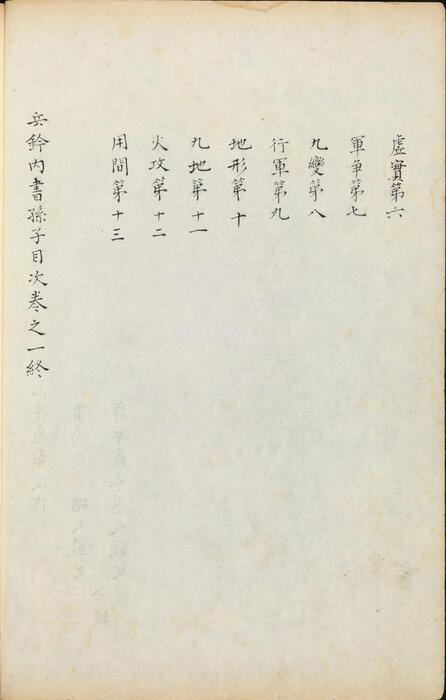 虛實第六
軍爭第七
九變第八
行軍第九
地形第十
九地第十一
火攻第十二
用間第十三
兵鈐內書孫子目次卷之一終